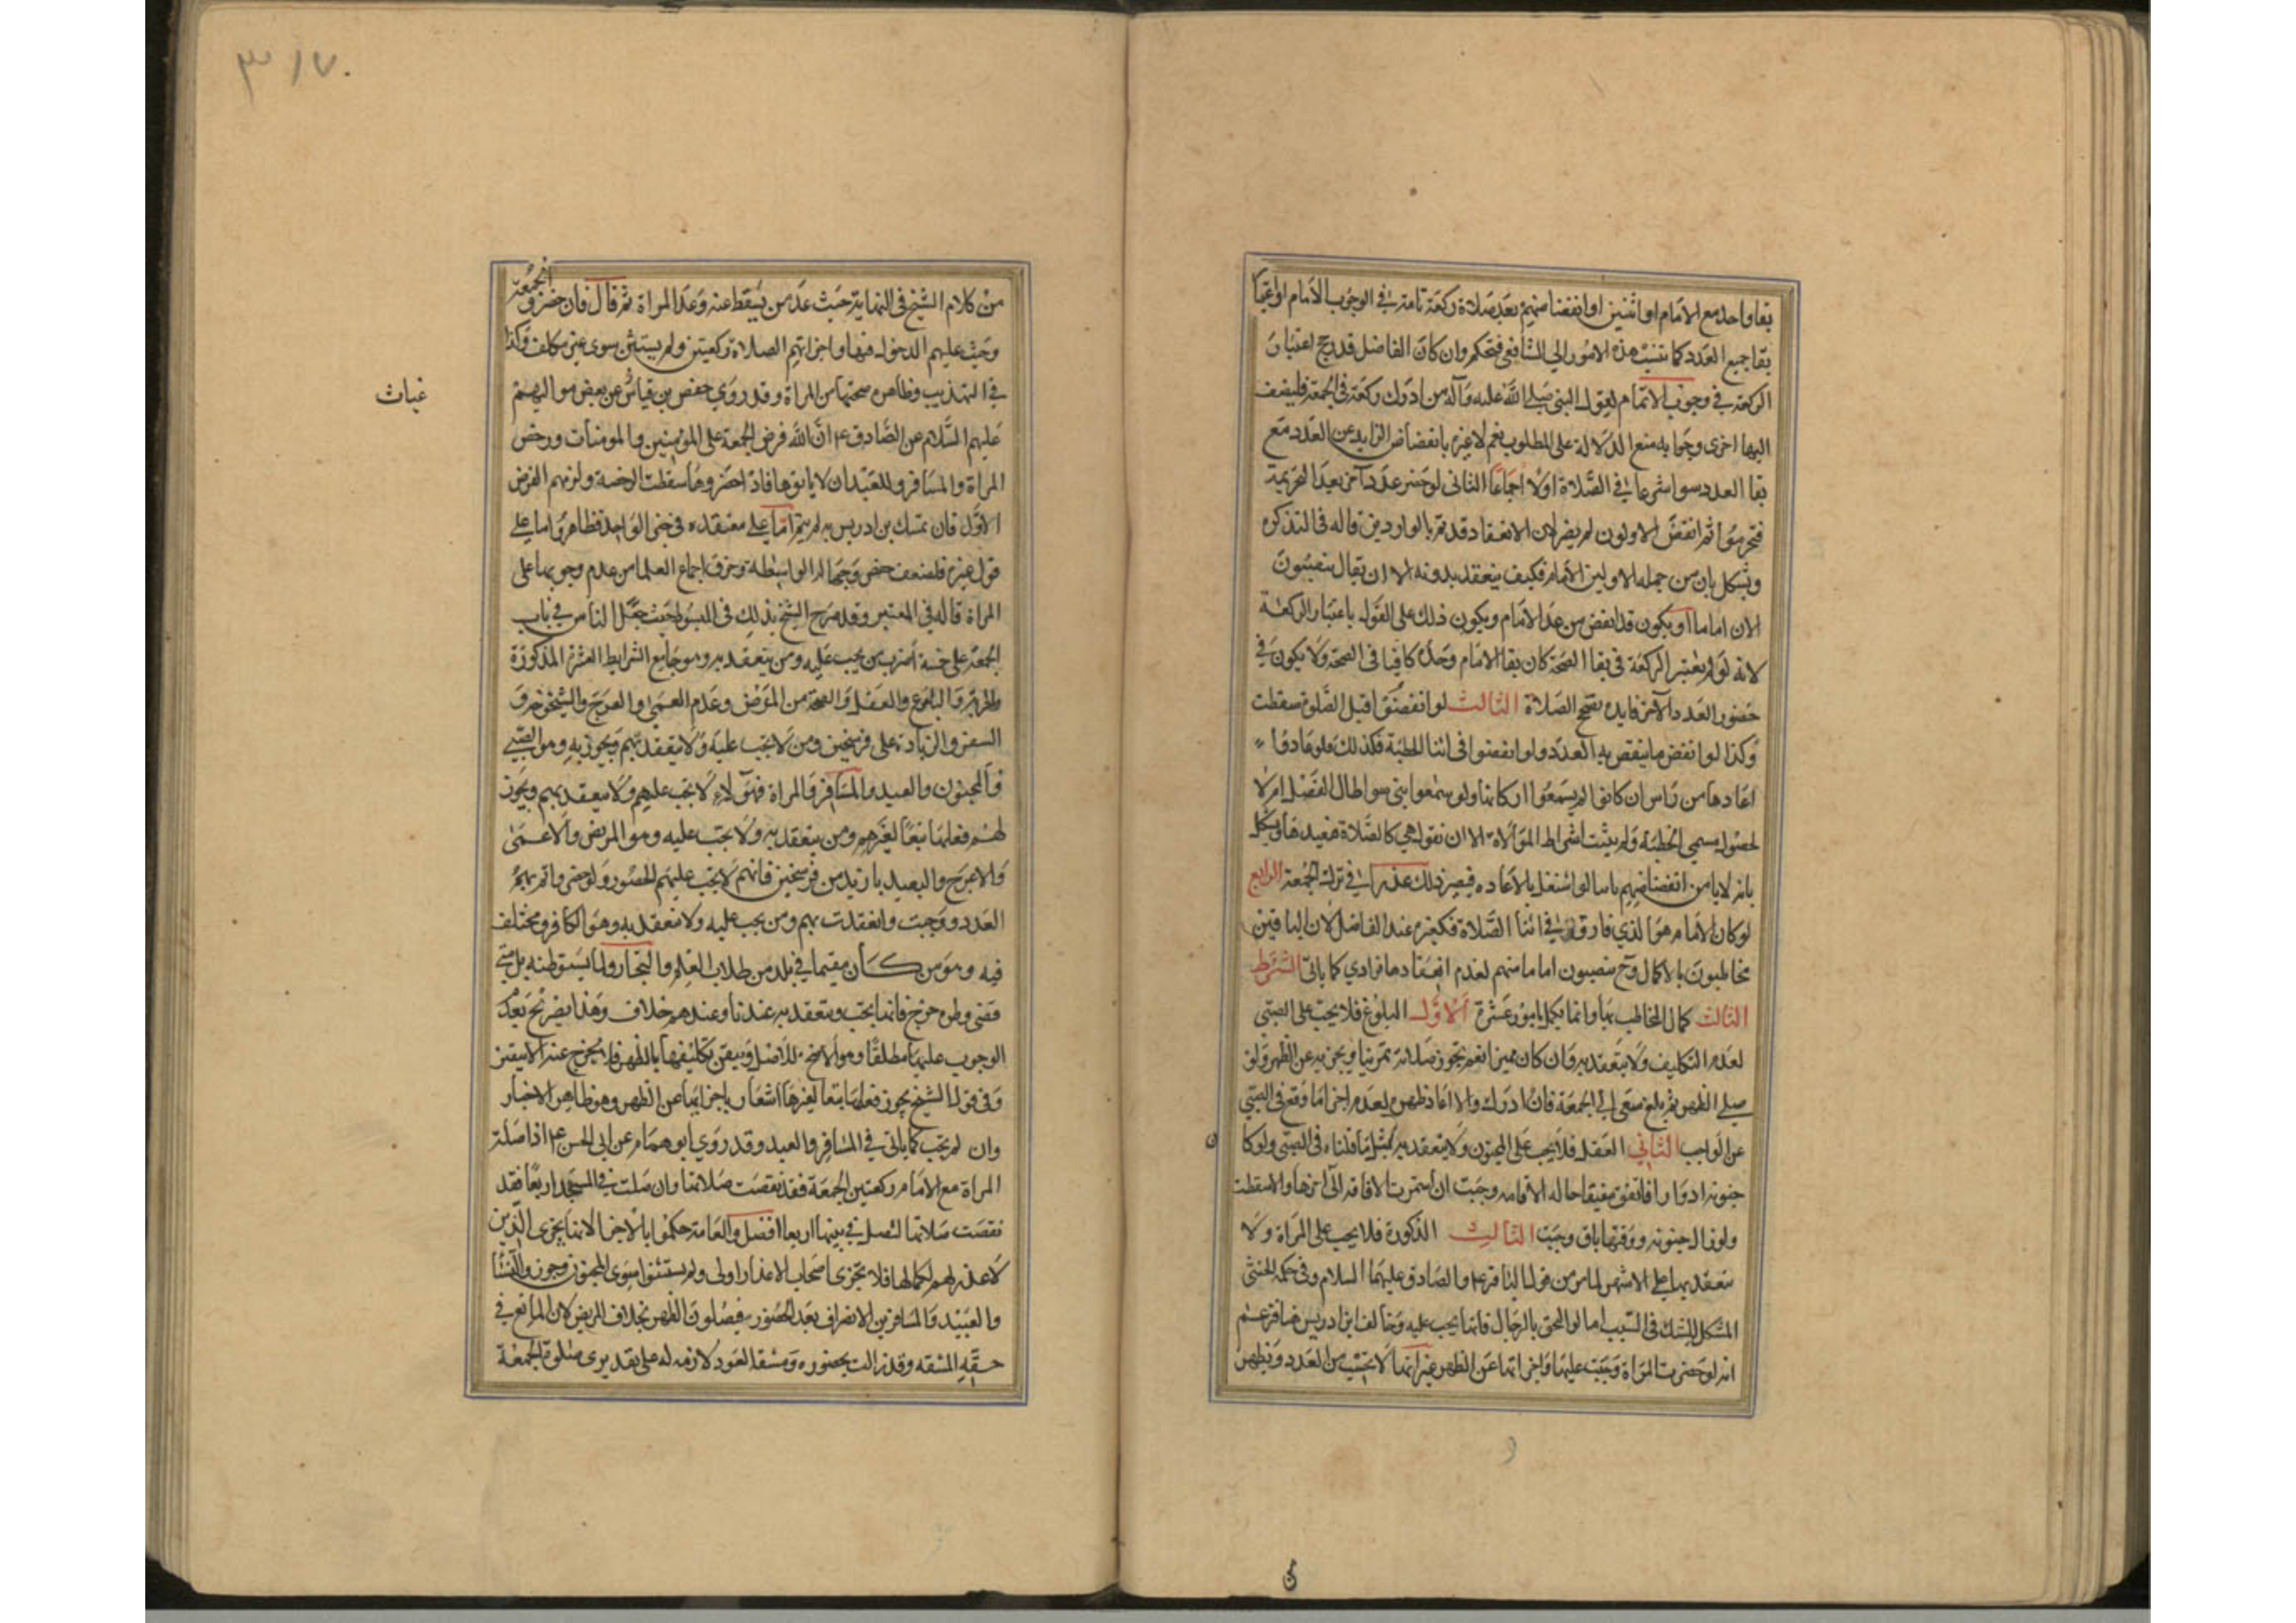 بقا واحد مع الامام او اثنين او انفضاضهم بعد صلاة ركعة تامة في الوجوب الامام او اعتبار
بقا جميع العدد كما تنسب هذه الامور الى الشافعي فتحكم وان كان الفاضل قد رجح اعتبار
الركعة في وجوب الاتمام لقول النبي صلى الله عليه وآله من ادرك ركعة في الجمعة فليضف
اليها اخرى وجوابه منع الدلالة على المطلوب نعم لا عبرة بانفضاض الزايد عن العدد مع
بقا العدد سوا شرعا في الصلاة اولا اجماعا الثاني لو حضر عدد آخر بعد التحريمة
فتحرموا ثم انفض الاولون لم يضر لان الانعقاد قد تم بالواردين قاله في التذكرة
ويشكل بان من جمله الاولين الامام فكيف ينعقد بدونه الا ان يقال ينصبون
الان اماما او يكون قد انفض من عدا الامام ويكون ذلك على القول باعتبار الركعة
لانه لو لم يعتبر الركعة في بقا الصحة كان بقا الامام وحده كافيا في الصحة ولا يكون في
حضور العدد الآخر فايدة تصحح الصلاة الثالث لو انفضوا قبل الصلوة سقطت
وكذا لو انفض ما ينقص به العدد ولو انفضوا في اثنا الخطبة فكذلك فلو عادوا
اعادها من راس ان كانوا لم يسمعوا اركانها ولو سمعوا بنى سوا طال الفصل ام لا
لحصول مسمى الخطبة ولم يثبت اشتراط الموالاة الا ان نقول هي كالصلاة فيعيدها ويشكل
بانه لا يامن انفضاضهم ثانيا لو اشتغل بالاعاده فيصير ذلك عذرا في ترك الجمعة الرابع
لو كان الامام هو الذي فارق في اثنا الصلاة فكغيره عند الفاضل لان الباقين
مخاطبون بالاكمال وح ينصبون اماما منهم لعدم انعقادها فرادي كما ياتي الشرط
الثالث كمال المخاطب بها وانما يكمل بامور عشرة الاول البلوغ فلا يجب على الصبي
لعدم التكليف ولا تنعقد به وان كان مميزا نعم تجوز صلاته تمرينا ويجزيه عن الظهر ولو
صلى الظهر ثم بلغ سعى الى الجمعة فان ادرك والا اعاد ظهره لعدم اجزا ما وقع في الصبي
عن الواجب الثاني العقل فلا يجب على المجنون ولا ينعقد به لمثل ما قلناه في الصبي ولو كا
ن
جنونه ادوارا فاتفق مفيقا حاله الاقامه وجبت ان استمرت الافاقه الى اخرها والا سقطت
ولو زال جنونه ووقتها باق وجبت الثالث الذكورة فلا يجب على المراة ولا
تنعقد بها على الاشهر لما مر من قول الباقر ع والصادق عليهما السلام وفي حكمه الخنثى
المشكل للشك في السبب اما لو التحق بالرجال فانها يجب عليه وخالف ابن ادريس هنا فزعم
انه لو حضرت المراة وجبت عليها واجزاتها عن الظهر غير انها لا تحتسب من العدد ويظهر
٣١٧
من كلام الشيخ في النهاية حيث عد من يسقط عنه وعد المراة ثم قال فان حضروا الجمعة
وجبت عليهم الدخول فيها واجزاتهم الصلاة ركعتين ولم يستثن سوى غير مكلف وكذا
في التهذيب وظاهره صحتها من المراة وقد روى حفص بن قياس عن بعض مواليهم
غياث
عليهم السلام عن الصادق ع ان الله فرض الجمعة على المؤمنين والمومنات ورخص
المراة والمسافر والعبد ان لا ياتوها فاذا حضروها سقطت الرخصة ولزمهم الفرض
الاول فان تمسك بن ادريس به لم يتم اما على معتقده في خبر الواحد فظاهر واما على
قول غيره فلضعف حفص وجهالة الواسطة وخرق اجماع العلما من عدم وجوبها على
المراة قاله في المعتبر وقد صرح الشيخ بذلك في المبسوط حيث جعل الناس في باب
الجمعة على خمسة اضرب من يجب عليه ومن ينعقد به وهو جامع الشرايط العشرة المذكورة
والحرية والبلوغ والعقل والصحة من المرض وعدم العمى والعرج والشيخوخة و
السفر والزيادة على فرسخين ومن لا يجب عليه ولا ينعقد بهم ويجوز به وهو الصبي
والمجنون والعبد والمسافر والمراة فهولاء لا يجب عليهم ولا ينعقد بهم ويجوز
لهم فعلها تبعا لغيرهم ومن ينعقد به ولا يجب عليه وهو المريض والاعمى
والاعرج والبعيد بازيد من فرسخين فانهم لا يجب عليهم الحضور ولو حضروا تم بهم
العدد ووجبت وانعقدت بهم ومن يجب عليه ولا تنعقد به وهو الكافر ومختلف
فيه وهو من كان مقيما في بلد من طلاب العلم والتجار ولما يستوطنه بل متى
قضى وطره خرج فانها يجب وينعقد به عندنا وعندهم خلاف وهذا يصرح بعدم
الوجوب عليها مطلقا وهو الاصح للاصل وتيقن تكليفها بالظهر فلا يخرج عنه الا بيقين
وفي قول الشيخ يجوز فعلها تبعا لغيرها اشعار باجزائها عن الظهر وهو ظاهر الاخبار
وان لم يجب كما ياتي في المسافر والعبد وقد روي ابو همام عن ابي الحسن ع اذا صلت
المراة مع الامام ركعتين الجمعة فقد نقصت صلاتها وان صلت في المسجد اربعا فقد
نقصت صلاتها لتصل في بيتها اربعا افضل والعامة حكموا بالاجزا لانها يجزى الذين
لا عذر لهم لكمالها فلا تجزى اصحاب الاعذار اولى ولم يستثنوا سوى المجنون وجوز للنساء
والعبيد والمسافرين الانصراف بعد الحضور فيصلون الظهر بخلاف المريض لان المانع في
حقه المشقه وقد زالت بحضوره ومشقة العود لازمه له على تقديري صلوة الجمعة